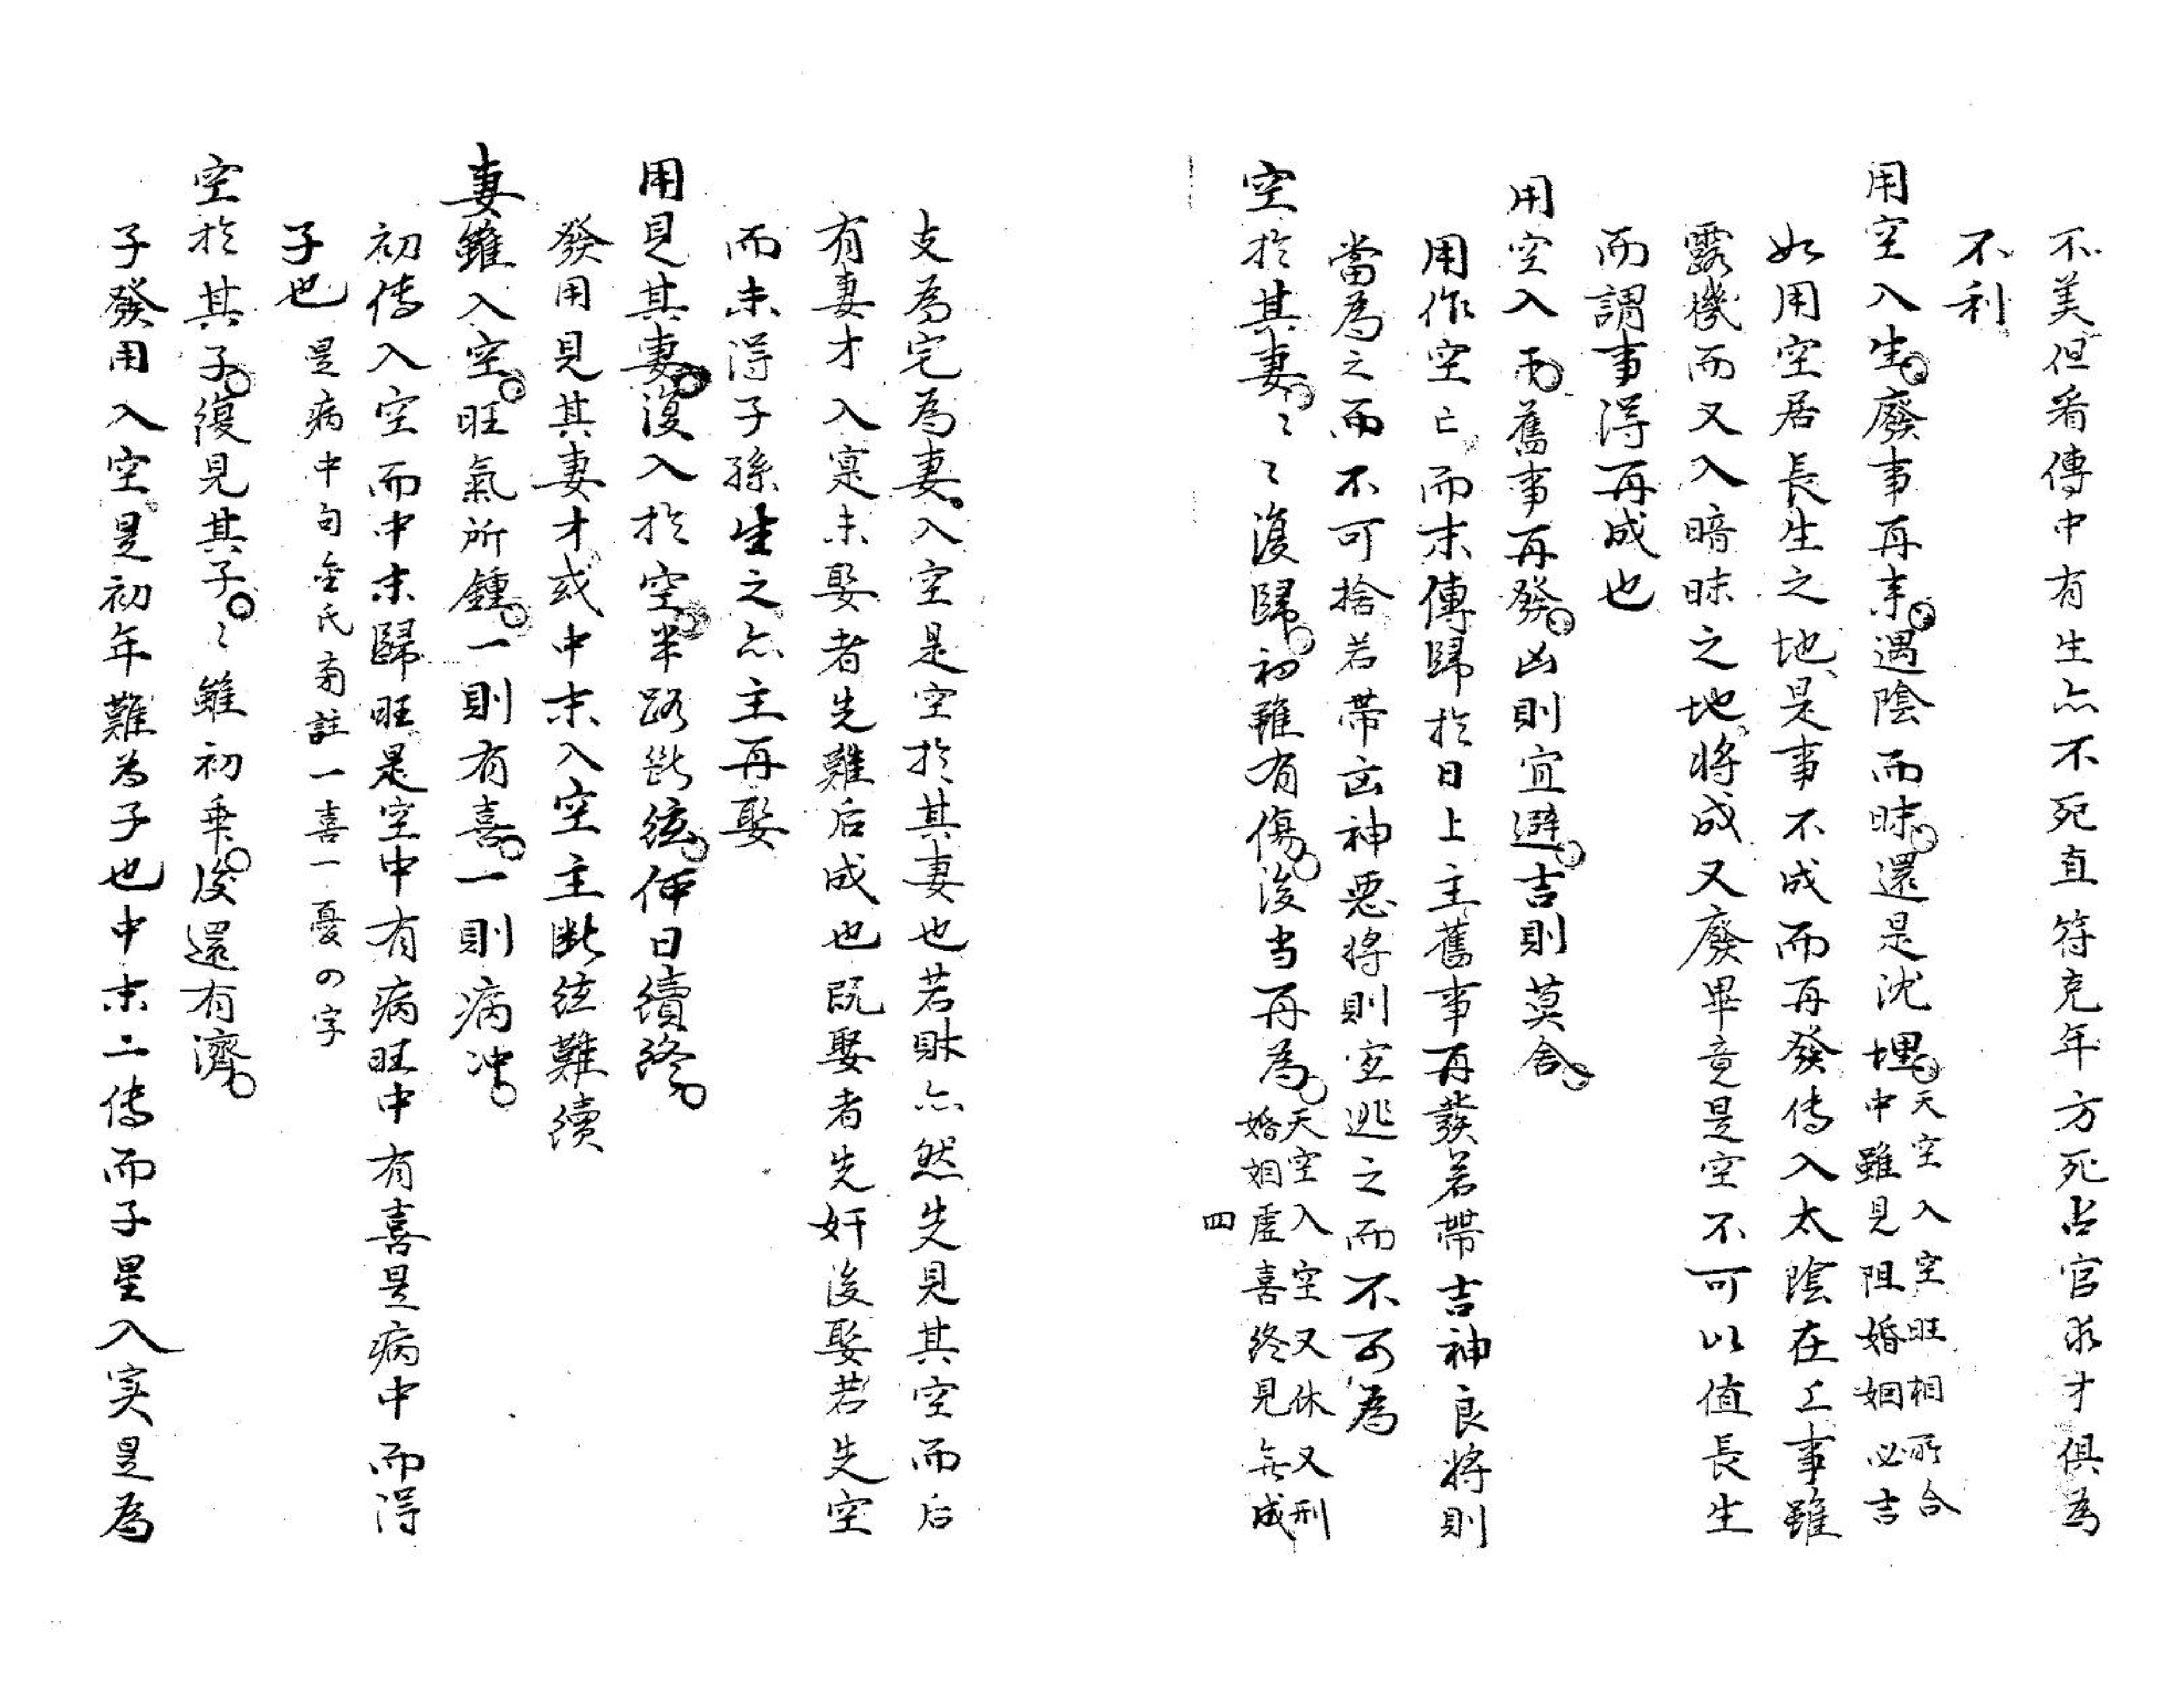 不美但看傳中有生亦不死直符克年方死占官求才俱為
不利
用空入生。廢事再來。遇陰而昧。還是沈埋。天空入空旺相所合
中雖見阻婚姻必吉
如用空居長生之地是事不成而再發传入太陰在上事雖
露機而又入暗昧之地将成又廢畢竟是空不可以值長生
而謂事得再成也
用空入而。舊事再發。凶則宜避。吉則莫舍。
用作空亡而末傳歸於日上主舊事再發若帶吉神良将則
當為之而不可捨若帶凶神惡将則宜逃之而不可為
空於其妻。〻〻復歸。初雖有傷。後当再為。天空入空又休又刑
婚姻虛喜終見無成
四
支為宅為妻。入空是空於其妻也若財亦然先見其空而后
有妻才入寔未娶者先難后成也既娶者先奸後娶若先空
而未得子孫生之亦主再娶
用見其妻。復入於空。半路斷弦。何日續終。
發用見其妻才或中末入空主斷弦難續
妻雖入空。旺氣所鍾。一則有喜。一則病冲。
初传入空而中末歸旺是空中有病旺中有喜是病中而得
子也 是病中句金氏旁註一喜一憂の字
空於其子。復見其子。〻雖初乖。後還有濟。
子發用入空。是初年難为子也中末二传而子星入实是為